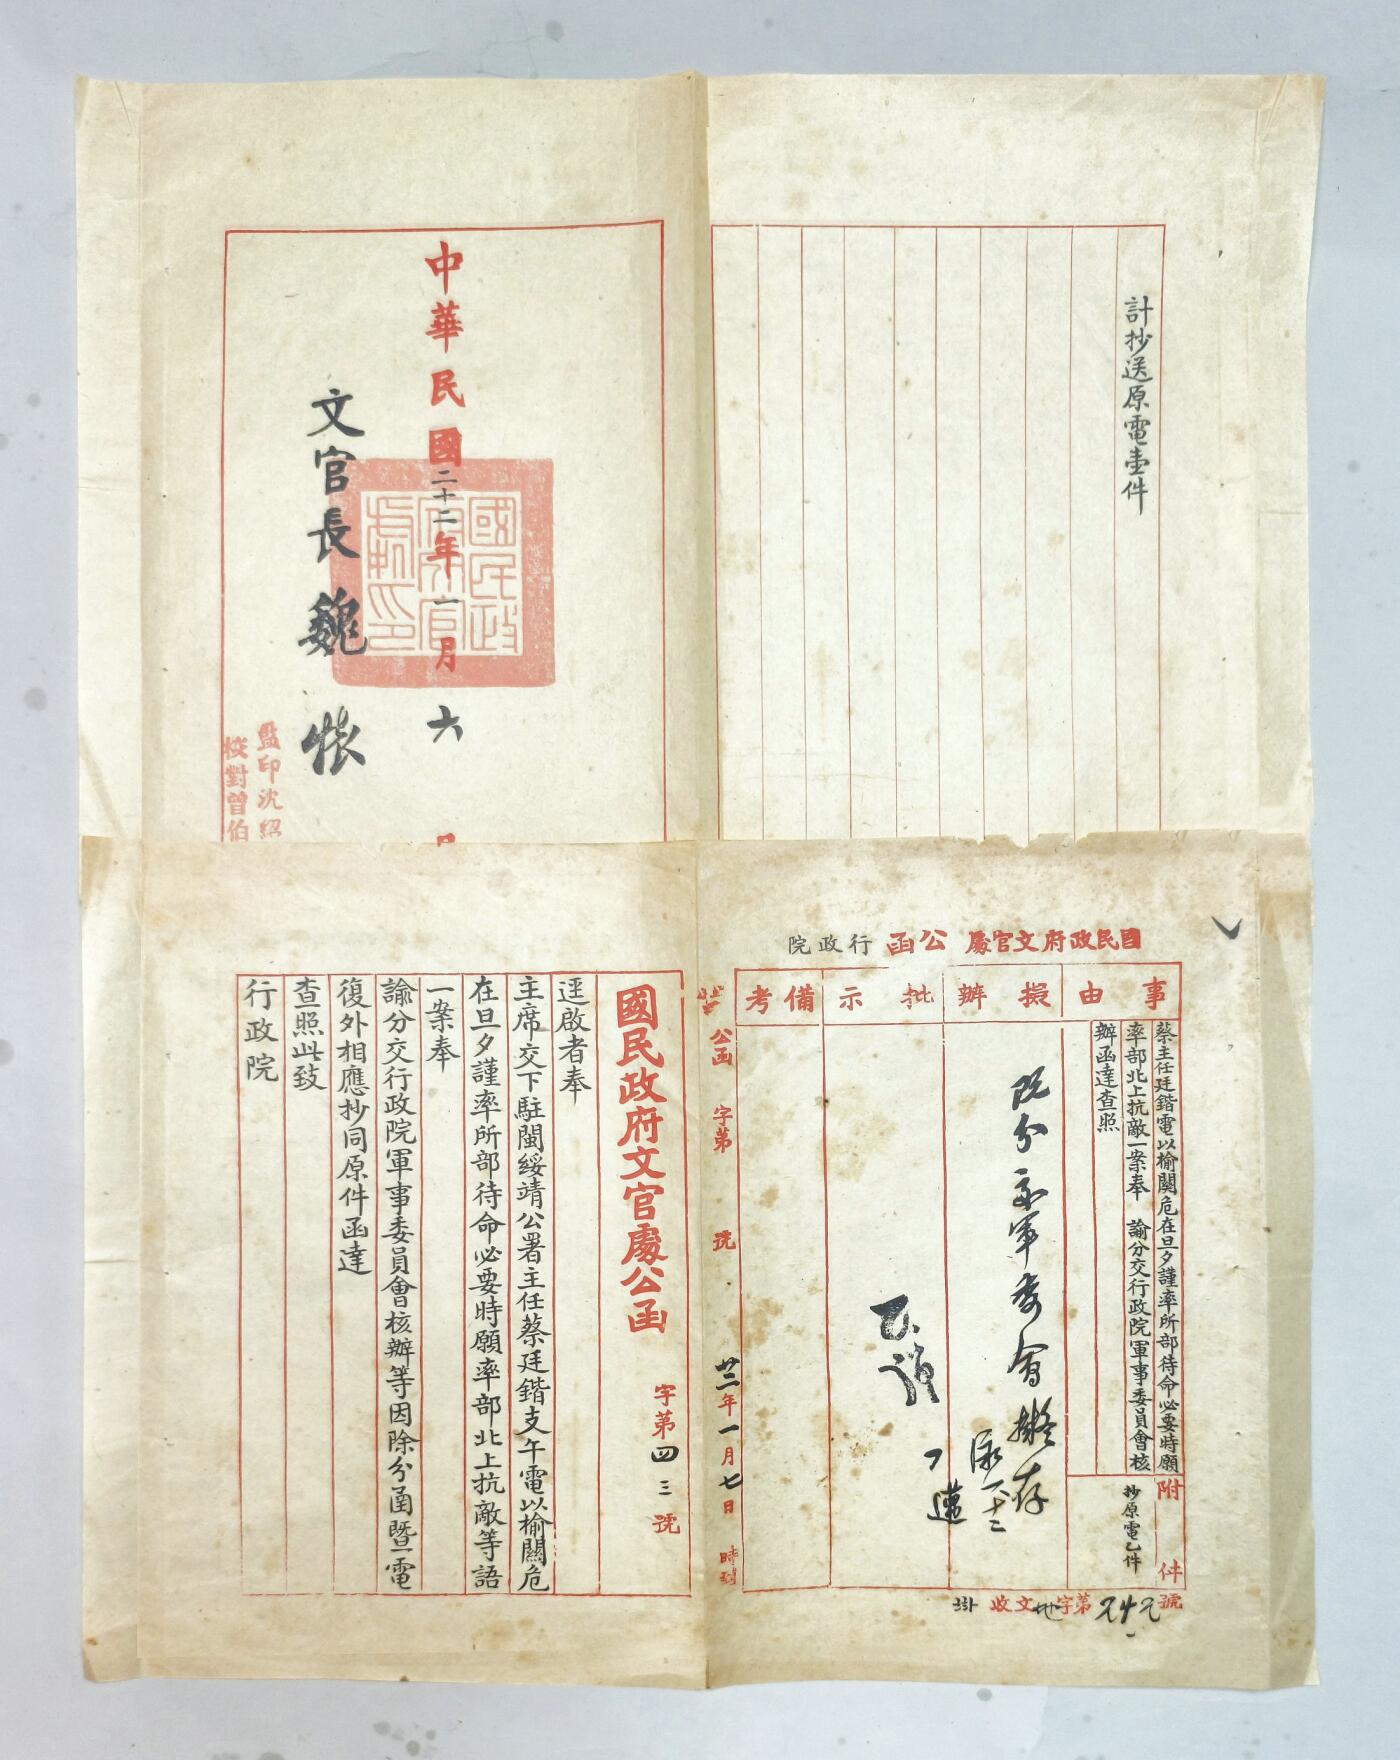 國民政府文官處公函行政院
事由
蔡主任廷鍇電以榆關危在旦夕謹率所部待命必要時願
率部北上抗敵一案奉　諭分交行政院軍事委員會核
辦函達查照
附件
抄原電乙件
擬辦
既分交軍委會擬存
批示
備考
收文字第號
公函　字第　號
廿二年一月七日　時到
國民政府文官處公函
字第四三號
逕啟者奉
主席交下駐閩綏靖公署主任蔡廷鍇支午電以榆關危
在旦夕謹率所部待命必要時願率部北上抗敵等語
一案奉
諭分交行政院軍事委員會核辦等因除分函暨電
復外相應抄同原件函達
查照此致
行政院
計抄送原電壹件
中華民國二十二年一月六日
國民政府文官處印
文官長魏懷
監印沈紹
校對曾伯